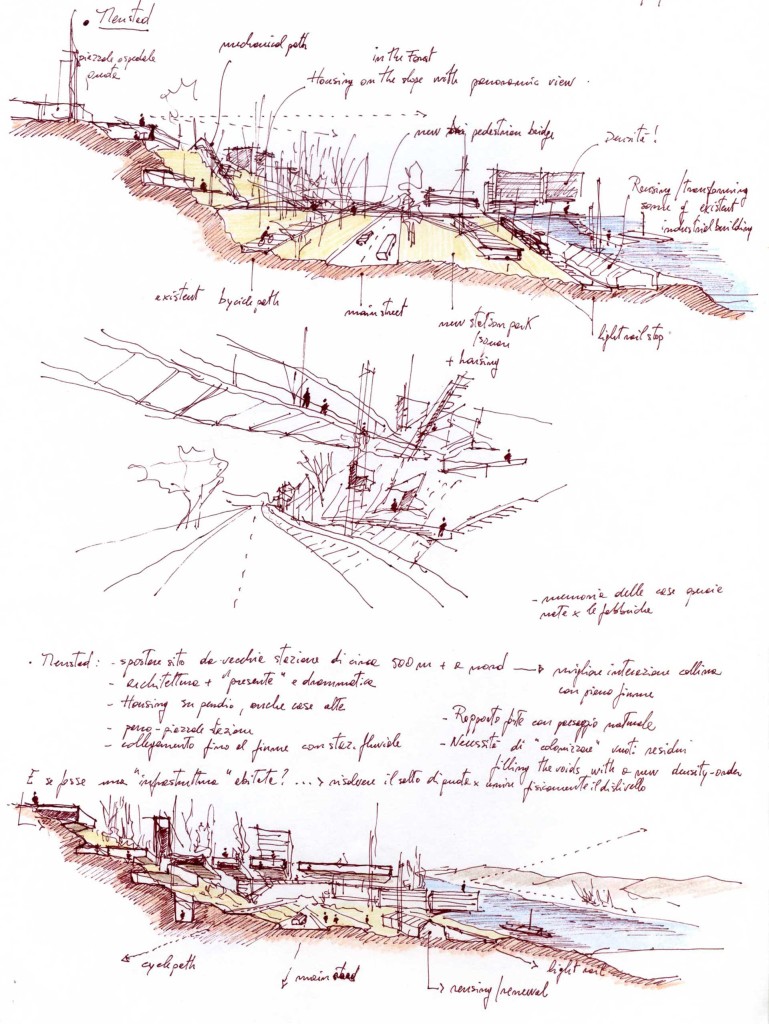 • Neustad
piazzale ospedale
quota
mechanical path
in the Forest
Housing on the slope with panoramic view.
new pedestrian bridge
Densità!
Reusing/transforming
some of existent
industrial building
existent bycicle path
main street
new station park
/square
+ housing
light rail stop
- memoria delle case operaie
nate x le fabbriche
• Neustad: - spostare sito da vecchia stazione di circa 500 m + a nord → migliore interazione collina
con piano fiume
- architettura + "presente" e drammatica
- Housing su pendio, anche case alte
- parco-piazzale stazione
- collegamento fino al fiume con staz. fluviale
- Rapporto forte con paesaggio naturale
- Necessità di "colonizzare" vuoti residui
filling the voids with a new density-order
E se fosse una "infrastruttura" abitata? ...> risolvere il salto di quota x unire fisicamente il dislivello
cycle path
main street
→ reusing/renewal
light rail